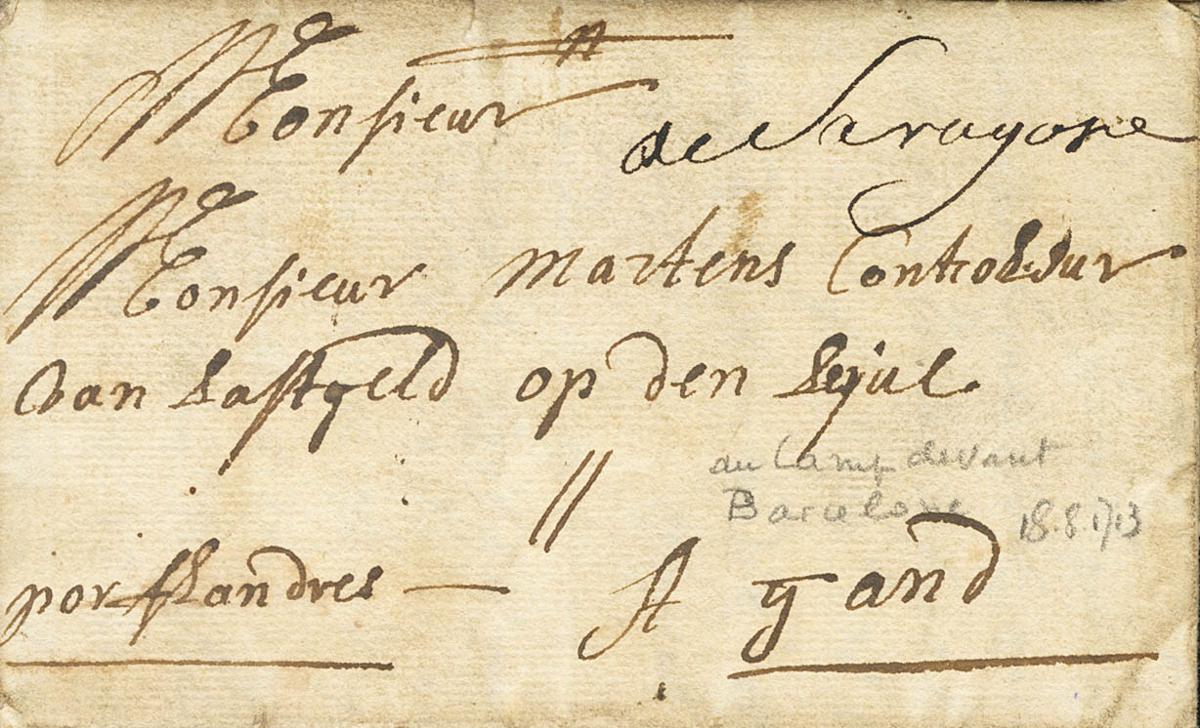 Monsieur
de Saragose
Monsieur Martens Controlleur
van Lastgeld op den
//
au Camp devant
Barcelone 18.8.1713
por flandres —
A gand